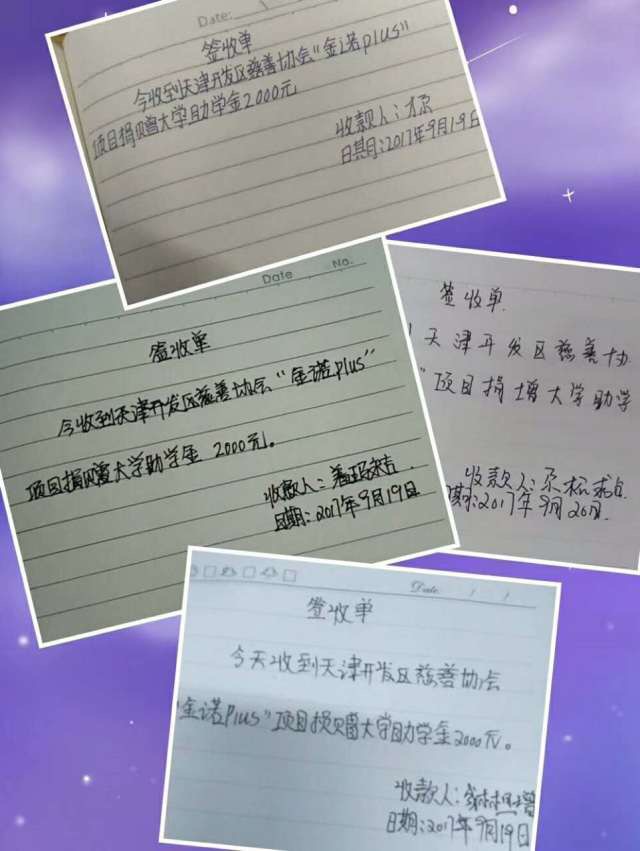 Date:
签收单
今收到天津开发区慈善协会“金诺plus”
项目捐赠大学助学金2000元
收款人:
日期:2017年9月19日
Date No.
签收单
今收到天津开发区慈善协会“金诺plus”
项目捐赠大学助学金 2000元。
收款人:
日期:2017年9月19日
签收单
天津开发区慈善协
”项目捐增大学助学
收款人:
期:2017年9月20日
Date
签收单
今天收到天津开发区慈善协会
“金诺Plus”项目捐赠大学助学金2000元。
收款人:
日期:2017年9月19日